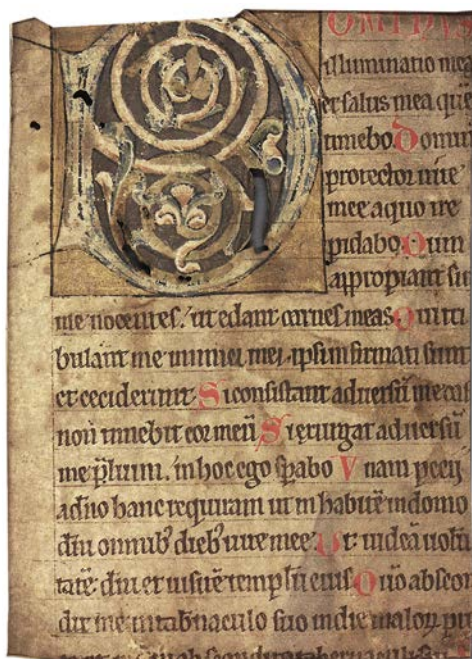 DOMINUS
illuminatio mea
et salus mea que
timebo. Domin
protector uite
mee a quo tre
pidabo. Dum
appropiant su
me nocentes. ut edant carnes meas. Qui tri
bulant me inimici mei. ipsi infirmati sunt
et ceciderunt. Si consistant aduersū me cast
non timebit cor meū. Si exurgat aduersū
me p̄lium. in hoc ego sp̄abo. Vnam petii
a dn̄o hanc requiram ut inhabitē in domo
dn̄i omnib; dieb; uite mee. Ut uideā uolū
tatē dn̄i et uisitē templū eius. Qūo abscon
dit me in tab̄naculo suo in die maloꝝ